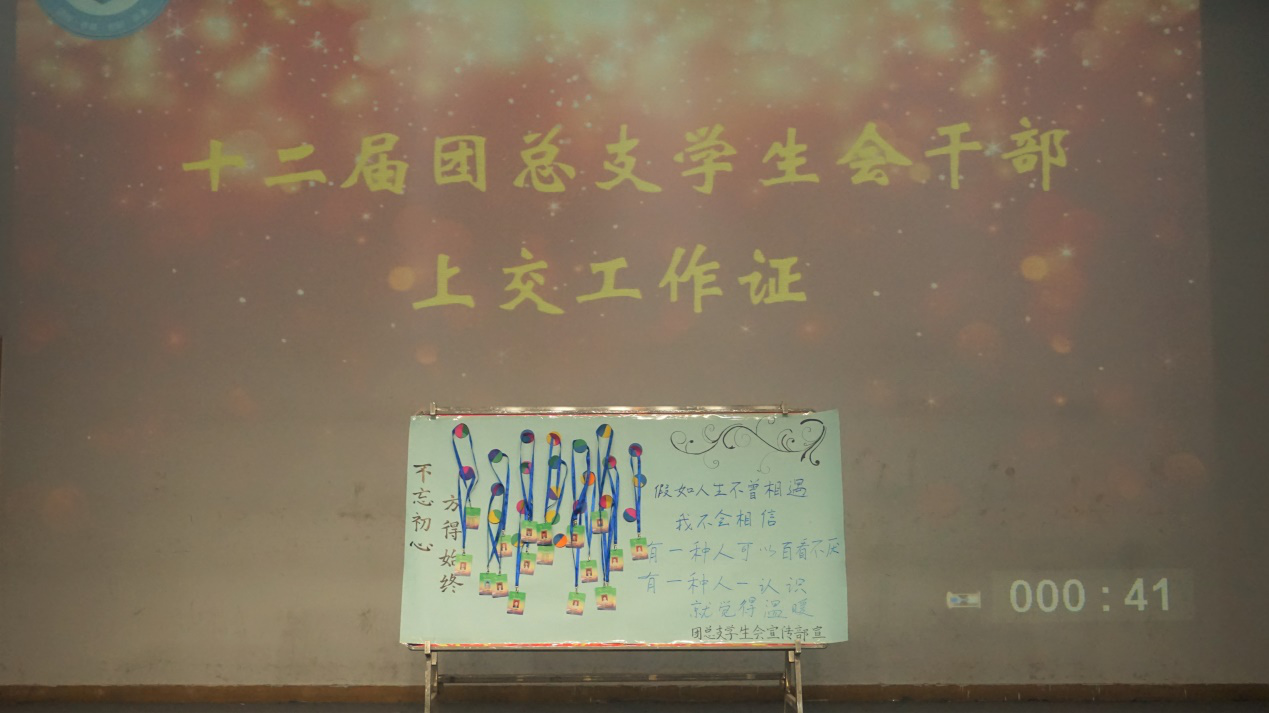 十二届团总支学生会干部
上交工作证
不忘初心
方得始终
假如人生不曾相遇
我不会相信
有一种人可以百看不厌
有一种人一认识
就觉得温暖
团总支学生会宣传部宣
000:41